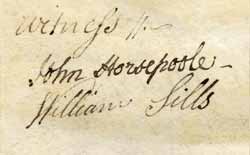 Witness
John Horsepoole
William Sills